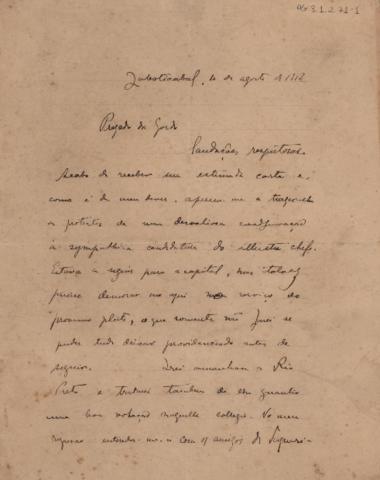 063.1.2.71-1
Jaboticabal, 10 de agosto de 1912
Prezado Dr. Gordo
Saudações respeitosas.
Acabo de receber sua estimada carta e,
como é de meu dever, apresso-me a
os protestos de uma
à sympathica candidatura do illustre chefe.
Estava a seguir para a capital, mas talvez
precise demorar-me aqui serviço do
proximo pleito, o que somente não farei se
puder tudo deixar providenciado antes de
seguir. Irei amanhan a Rio
Preto e tratarei tambem de
uma boa votação naquelle collegio. No meu
regresso entender-me-ei com os amigos de